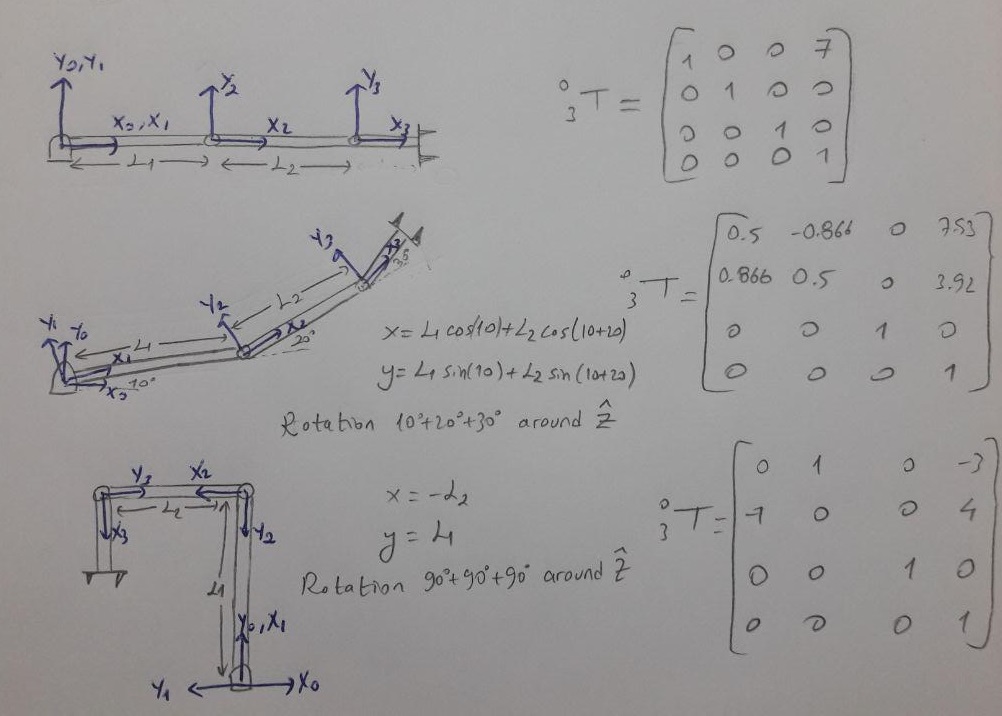 Y0,Y1
Y2
Y3
X0,X1
X2
X3
L1
L2
0 3 T =
1 0 0 7
0 1 0 0
0 0 1 0
0 0 0 1
Y1
Y0
L1
Y2
L2
Y3
X1
X0
10°
X2
20°
X3
x = L1 cos(10)+L2 cos(10+20)
y = L1 sin(10)+L2 sin(10+20)
Rotation 10°+20°+30° around Ẑ
0 3 T =
0.5 -0.866 0 7.53
0.866 0.5 0 3.92
0 0 1 0
0 0 0 1
Y3
X2
L2
X3
Y2
L1
Y0,X1
Y1
X0
x = -L2
y = L1
Rotation 90°+90°+90° around Ẑ
0 3 T =
0 1 0 -3
-1 0 0 4
0 0 1 0
0 0 0 1